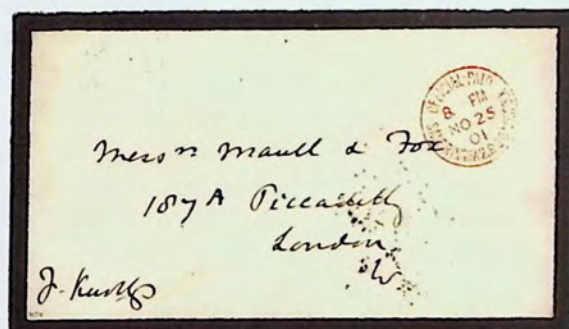 OFFICIAL PAID
8 PM
NO 25
01
Messrs Maull & Fox
187A Piccadilly
London
W